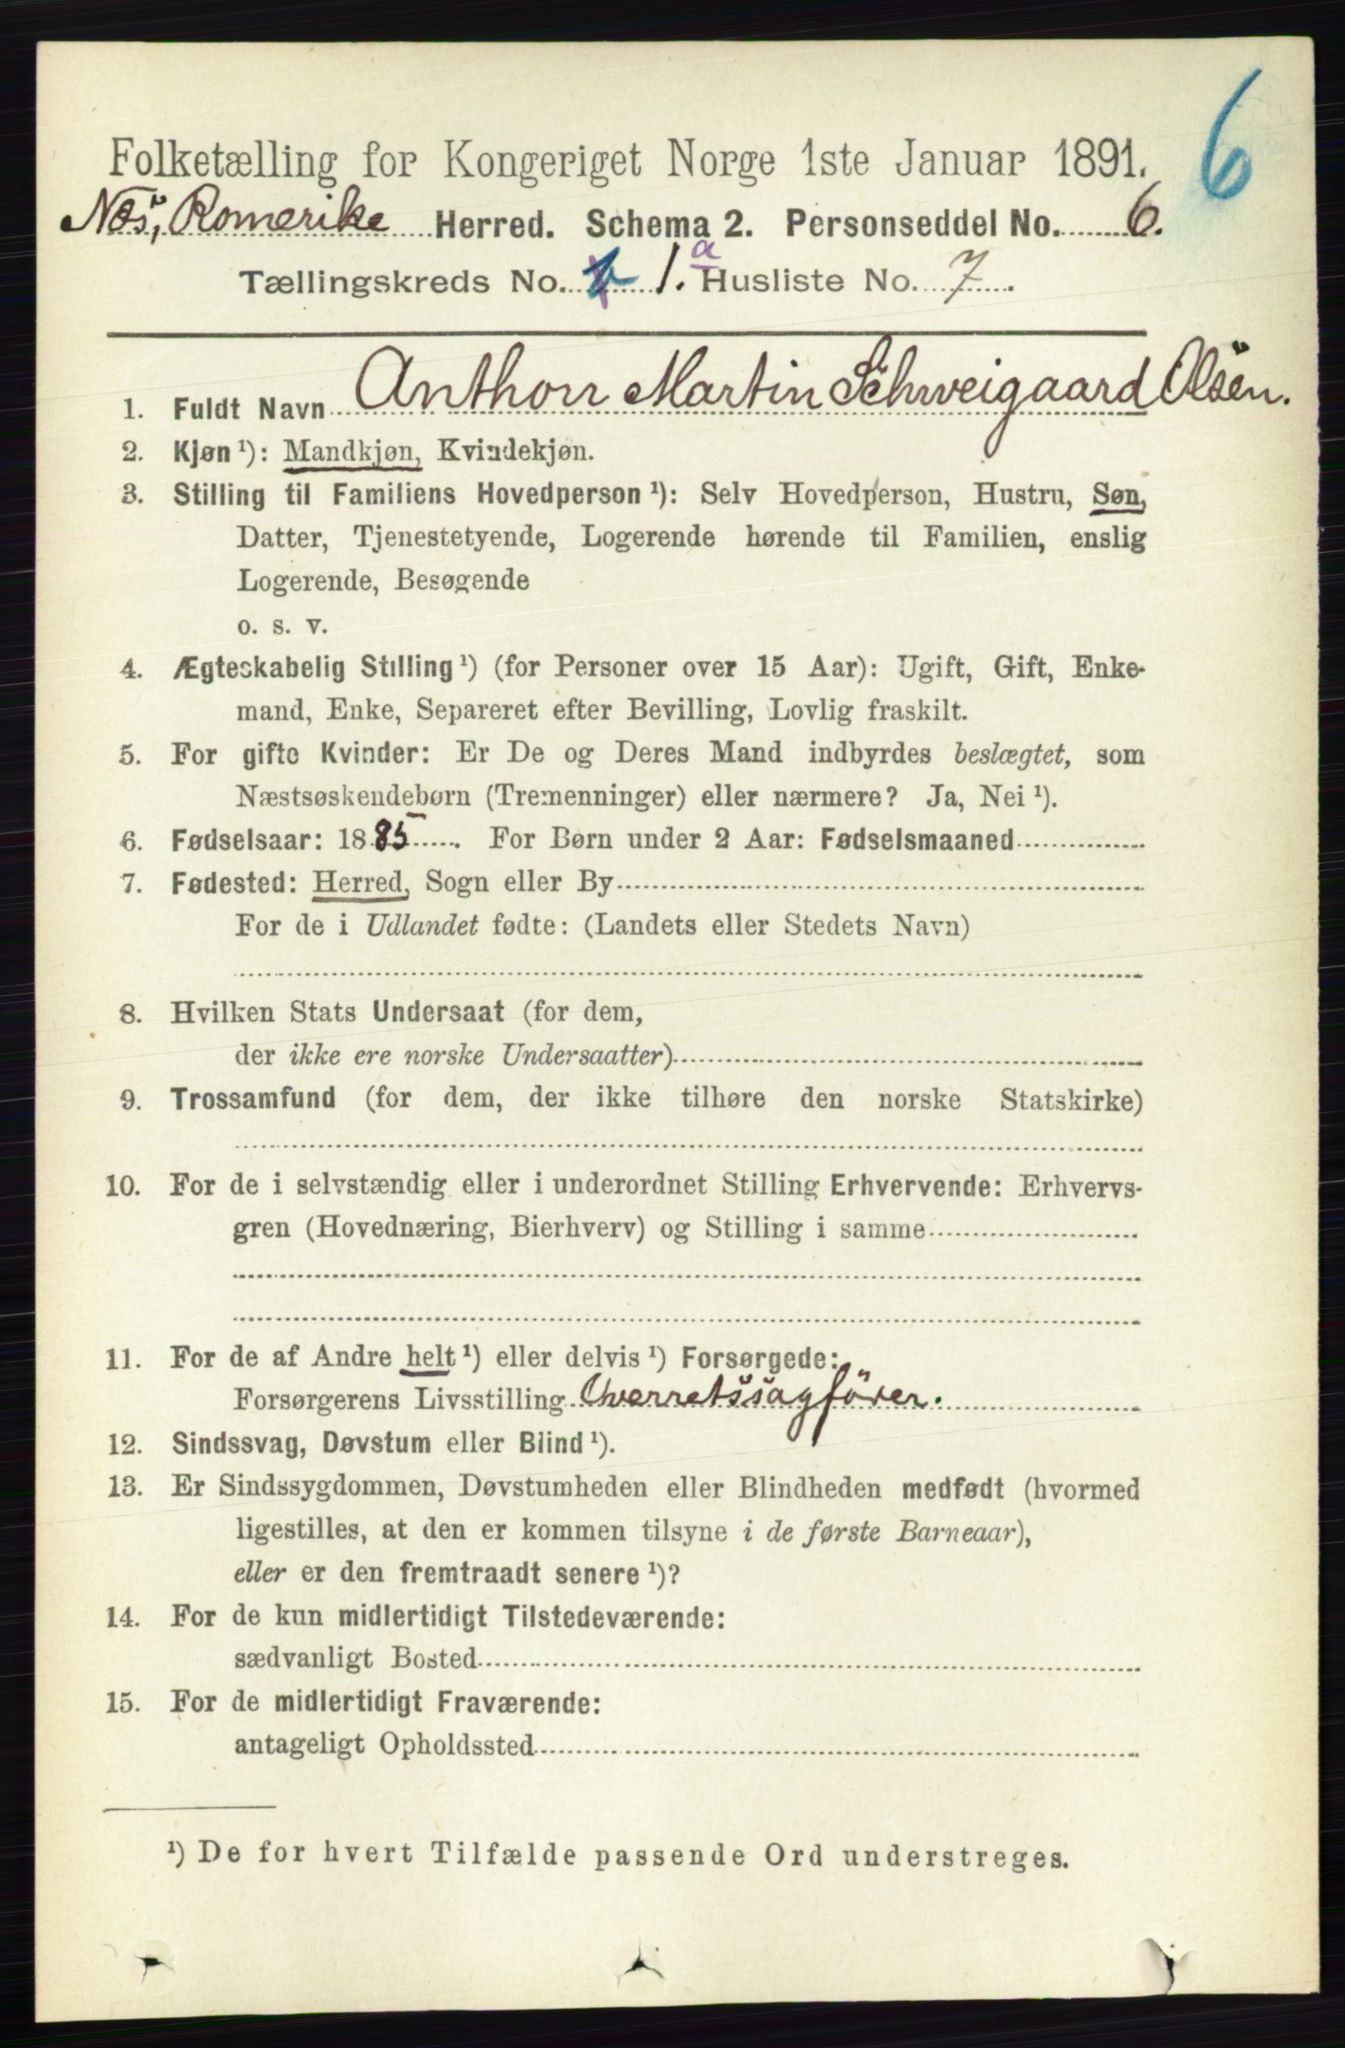 6
Folketælling for Kongeriget Norge 1ste Januar 1891.
Næs, Romerike Herred. Schema 2. Personseddel No. 6.
Tællingskreds No. 1. a Husliste No. 7
1. Fuldt Navn Anthon Martin Schweigaard Olsen.
2. Kjøn ¹): Mandkjøn, Kvindekjøn.
3. Stilling til Familiens Hovedperson ¹): Selv Hovedperson, Hustru, Søn,
Datter, Tjenestetyende, Logerende hørende til Familien, enslig
Logerende, Besøgende
o. s. v.
4. Ægteskabelig Stilling ¹) (for Personer over 15 Aar): Ugift, Gift, Enke-
mand, Enke, Separeret efter Bevilling, Lovlig fraskilt.
5. For gifte Kvinder: Er De og Deres Mand indbyrdes beslægtet, som
Næstsøskendebørn (Tremenninger) eller nærmere? Ja, Nei ¹).
6. Fødselsaar: 1885. For Børn under 2 Aar: Fødselsmaaned
7. Fødested: Herred, Sogn eller By
For de i Udlandet fødte: (Landets eller Stedets Navn)
8. Hvilken Stats Undersaat (for dem,
der ikke ere norske Undersaatter)
9. Trossamfund (for dem, der ikke tilhøre den norske Statskirke)
10. For de i selvstændig eller i underordnet Stilling Erhvervende: Erhvervs-
gren (Hovednæring, Bierhverv) og Stilling i samme
11. For de af Andre helt ¹) eller delvis ¹) Forsørgede:
Forsørgerens Livsstilling Overretssagfører.
12. Sindssvag, Døvstum eller Blind ¹).
13. Er Sindssygdommen, Døvstumheden eller Blindheden medfødt (hvormed
ligestilles, at den er kommen tilsyne i de første Barneaar),
eller er den fremtraadt senere ¹)?
14. For de kun midlertidigt Tilstedeværende:
sædvanligt Bosted
15. For de midlertidigt Fraværende:
antageligt Opholdssted
¹) De for hvert Tilfælde passende Ord understreges.